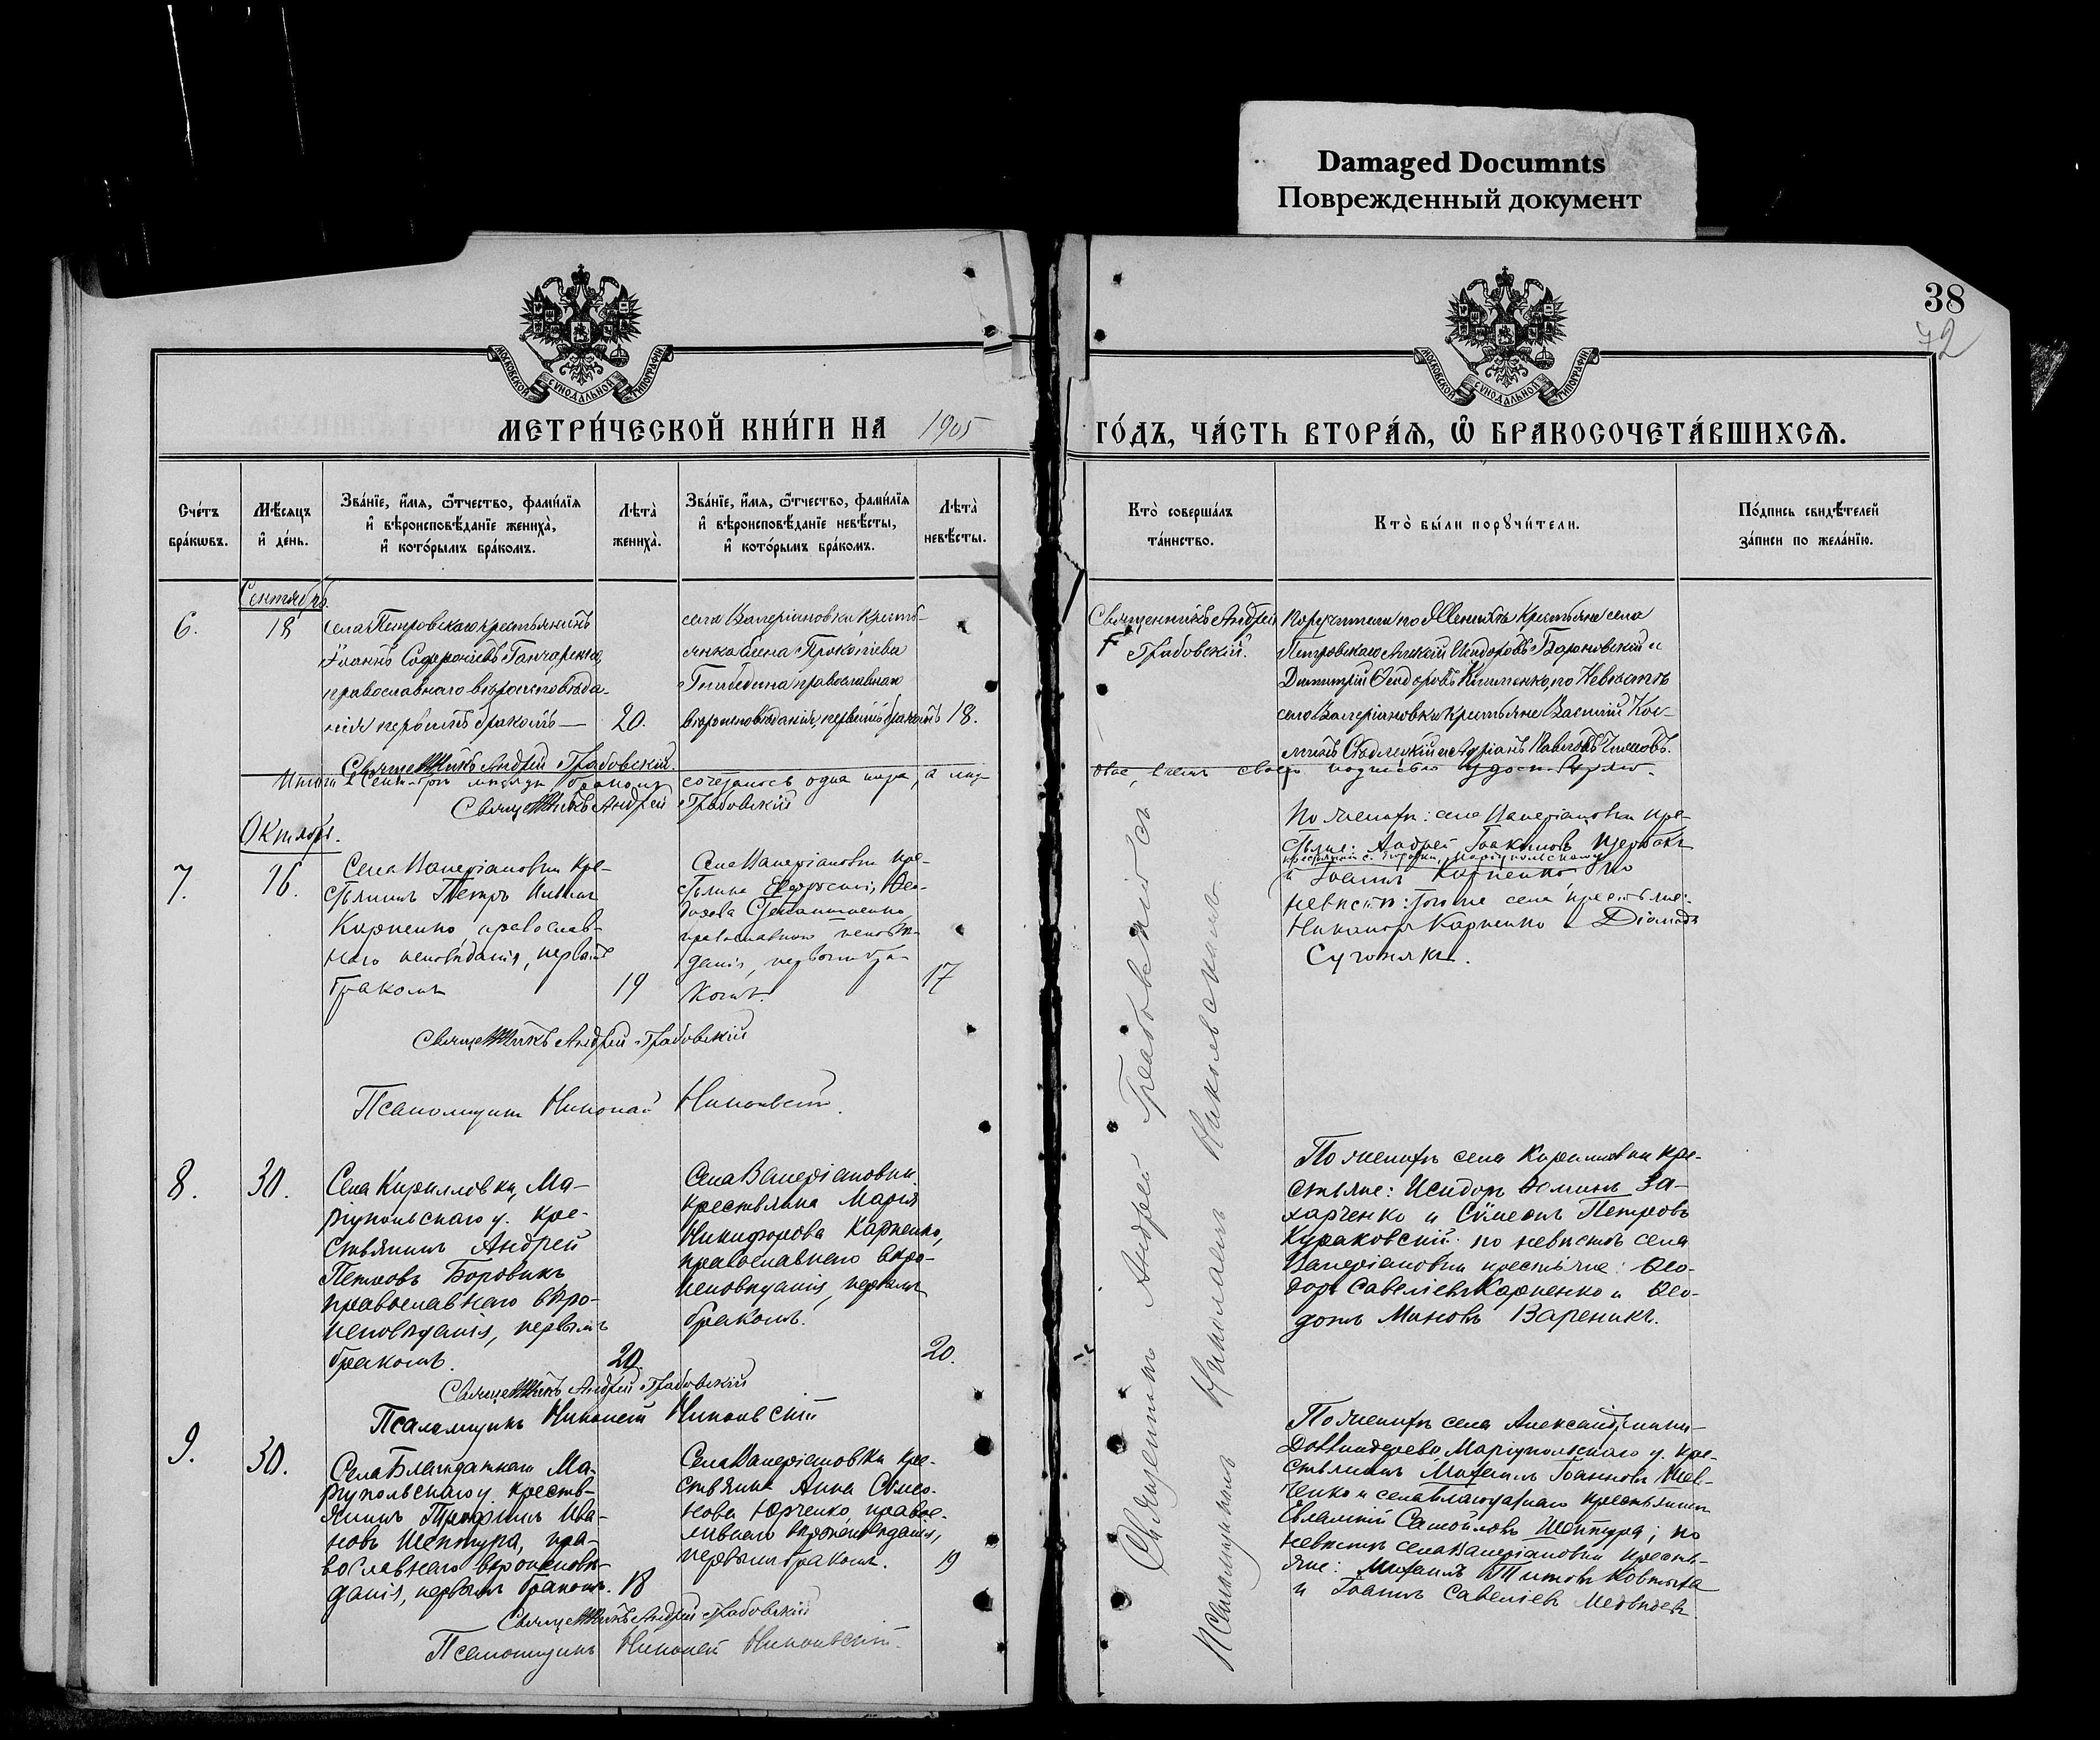 Damaged Documnts
Поврежденный документ
38
72
МОСКОВСКОЙ СѴНОДАЛЬНОЙ ТИПОГРАФІИ
МОСКОВСКОЙ СѴНОДАЛЬНОЙ ТИПОГРАФІИ
МЕТРИ́ЧЕСКОЙ КНИ́ГИ НА 1905
ГО́ДЪ, ЧА́СТЬ ВТОРА́Я, Ѡ҆ БРАКОСОЧЕТА́ВШИХСЯ.
Сче́тъ
бра́кѡвъ.
Мѣ́сяцъ
и҆ де́нь.
Зва́нїе, и҆́мя, ѻ҆́тчество, фами́лїя
и҆ вѣроисповѣ́данїе жениха̀,
и҆ кото́рымъ бра́комъ.
Лѣта̀
жениха̀.
Зва́нїе, и҆́мя, ѻ҆́тчество, фами́лїя
и҆ вѣроисповѣ́данїе невѣ́сты,
и҆ кото́рымъ бра́комъ.
Лѣта̀
невѣ́сты.
Кто̀ соверша́лъ
та́инство.
Кто̀ бы́ли порꙋчи́тели.
По́дпись свидѣ́телей
за́писи по жела́нїю.
Сентябрь.
6.
18
села Петровскаго крестьянинъ
Іоаннъ Софроніевъ Ганчаренко,
православнаго вѣроисповѣда-
нія первымъ бракомъ —
20.
села Валеріановки кресть-
янка Елена Прокопіева
православнаго
вѣроисповѣданія, первымъ бракомъ
18.
Священникъ Андрей
Грабовскій.
Поручители по Женихѣ Крестьяне села
Петровскаго Алексій Исидоровъ Барановскій и
Димитрій Ѳеодоровъ Клименко, по Невѣстѣ
села Валеріановки Крестьяне Василій
и Адріанъ Павловъ
Священникъ Андрей Грабовскій.
Итого въ Сентябрѣ мѣсяцѣ бракомъ сочеталось одна пара, а лицъ
двое, въ чемъ своею подписью удостовѣряю.
Священникъ Андрей Грабовскій
Октябрь.
7.
16.
Села Валеріановки кре-
стьянинъ Петръ
Карпенко православ-
наго исповѣданія, первымъ
бракомъ
19
Села Валеріановки кре-
стьянка Евфросинія Ѳео-
дорова Степаненко,
православнаго исповѣ-
данія, первымъ бра-
комъ.
17
По женихѣ: села Валеріановки кре-
стьяне: Андрей Іоакимовъ Щербакъ
и Іоаннъ Карпенко по
невѣстѣ: того же села крестьяне:
Никаноръ Карпенко и Діомидъ
Сугонякъ.
Священникъ Андрей Грабовскій
Псаломщикъ Николай
8.
30.
Села Кирилловки, Ма-
ріупольскаго у. кре-
стьянинъ Андрей
Петровъ Боровикъ
православнаго вѣро-
исповѣданія, первымъ
бракомъ.
20.
Села Валеріановки
крестьянка Марія
Никифорова Карпенко,
православнаго вѣро-
исповѣданія, первымъ
бракомъ.
20.
По женихѣ села Кирилловки кре-
стьяне: Исидоръ Ѳоминъ За-
харченко и Сѵмеонъ Петровъ
Кураковскій по невѣстѣ села
Валеріановки крестьяне: Ѳео-
доръ Савеліевъ Карпенко и Ѳео-
дотъ Миновъ Вареникъ.
Священникъ Андрей Грабовскій
Псаломщикъ Николай
9.
30.
Села Благодатнаго Ма-
ріупольскаго у. кресть-
янинъ Трофимъ Ива-
новъ Шептура, пра-
вославнаго вѣроисповѣ-
данія, первымъ бракомъ.
18
Села Валеріановки кре-
стьянка Анна Сѵмео-
нова Юрченко, правос-
лавнаго вѣроисповѣданія,
первымъ бракомъ.
19
По женихѣ села
Маріупольскаго у. кре-
стьянинъ Михаилъ Іоанновъ Шев-
ченко и села Благодатнаго крестьянинъ
Евлампій Самойловъ Шептура; по
невѣстѣ села Валеріановки кресть-
яне: Михаилъ Титовъ
и Іоаннъ Савеліевъ Медвѣдевъ
Священникъ Андрей Грабовскій
Псаломщикъ Николай
Священникъ Андрей Грабовскій съ
Псаломщикомъ Николаемъ